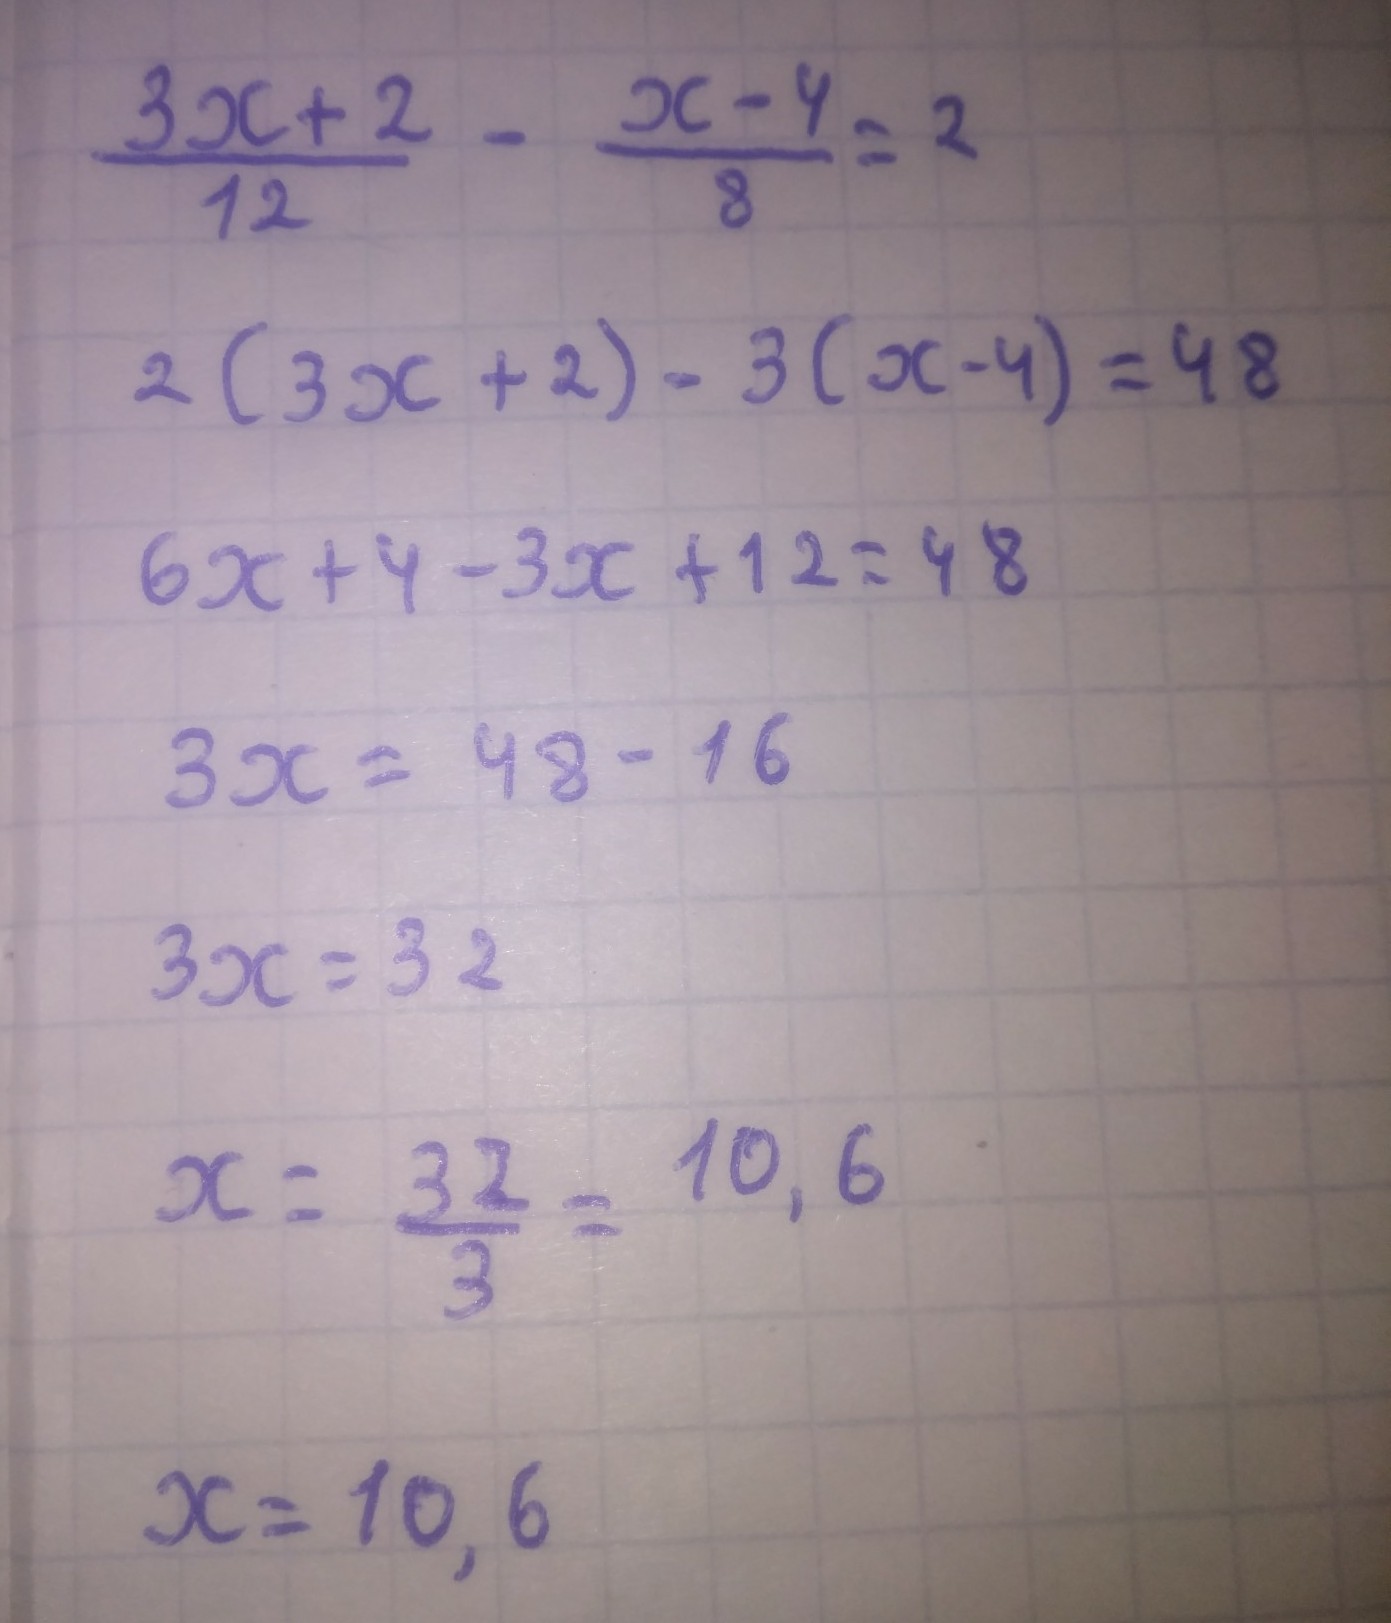 3x+2/12 - x-4/8 = 2
2(3x+2)-3(x-4)=48
6x+4-3x+12=48
3x=48-16
3x=32
x=32/3=10,6
x=10,6